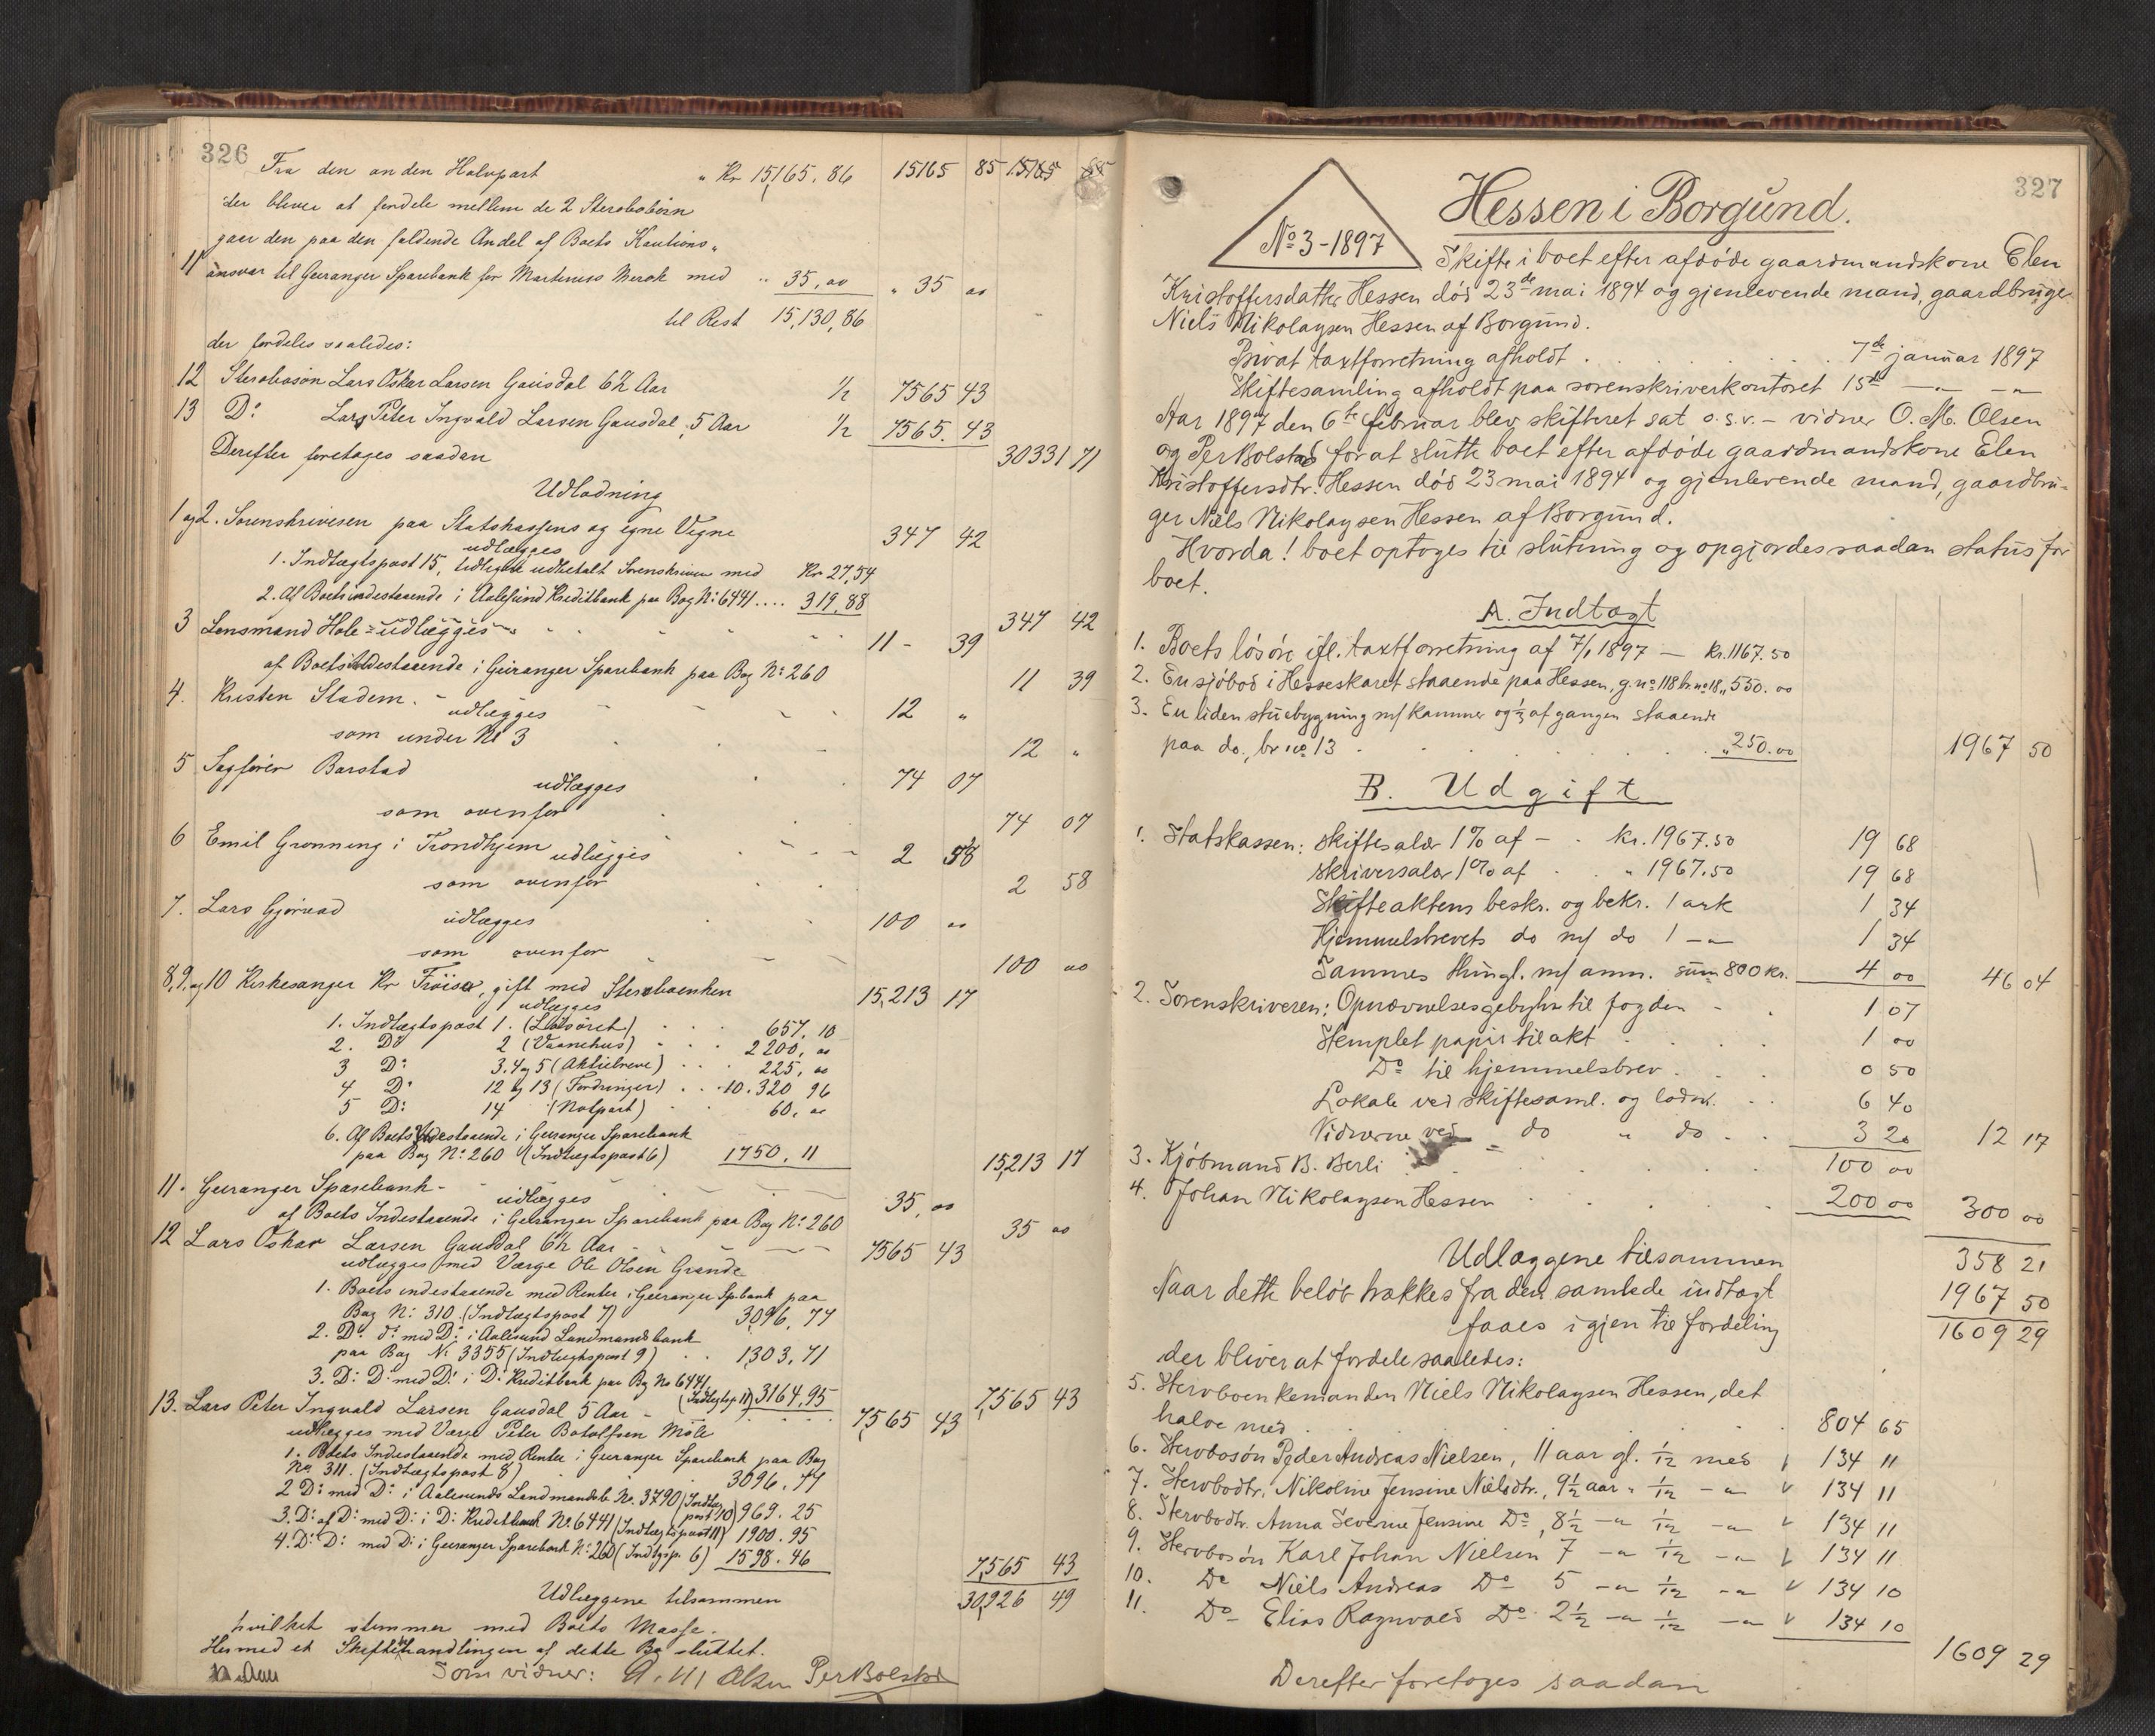 326
Fra den anden Halvpart " Kr 15,165,86 15165 85 15165 85
der bliver at fordele mellem de 2 Stervbobørn
gaar den paa den faldende Andel af Boets Kautions„
11 ansvar til Geiranger Sparebank for Martinius Merok med .. 35,00 " 35 00
til Rest 15,130,86
der fordeles saaledes:
12 Stervbosøn Lars Oskar Larsen Gausdal 6½ Aar ½ 7565 43
13 Do: Lars Peter Ingvald Larsen Gausdal, 5 Aar ½ 7565. 43
Derefter foretages saadan 30331 71
Udlodning
1 og 2. Sorenskriveren paa Statskassens og egne Vegne 347 42
udlægges
1. Indtægtspost 15, udbetalt Sorenskriveren med Kr 27,54
2. Af Boets indestaaende i Aalesund Kreditbank paa Bog No: 6441 .... 319,88
347 42
3 Lensmand Hole - udlægges 11 - 39
af Boets Indestaaende i Geiranger Sparebank paa Bog No: 260
11 39
4. Kristen Stadem. - udlægges 12 "
som under No 3
12 "
5 Sagfører Barstad
udlægges 74 07
som ovenfor
74 07
6 Emil Grønning i Trondhjem udlægges 2 58
som ovenfor
2 58
7. Lars Gjørvad
udlægges 100 00
som ovenfor
100 00
8, 9, og 10 Kirkesanger Kr Frøisa, gift med Stervboenken 15,213 17
udlægges
1. Indtægtspost 1. (Løsøret) 657, 10
2. Do 2 (Vaanehus) 2200, 00
3 D: 3. 4 og 5 (Aktiebreve) 225, 00
4 D: 12 og 13 (Fordringer) 10.320 96
5 D: 14 (Notpart) 60, 00
6. Af Boets Indestaaende i Geiranger Sparebank
paa Bog No: 260 (Indtægtspost 6) 1750, 11
15,213 17
11. Geiranger Sparebank - udlægges 35, 00
af Boets Indestaaende i Geiranger Sparebank paa Bog No: 260
35 00
12 Lars Oskar Larsen Gausdal 6½ Aar 7565 43
udlægges med Værge Ole Olsen Grande
1. Boets indestaaende med Renter i Geiranger Sp.bank paa
Bog No: 310. (Indtægtspost 7) 3,096, 77
2. D: d: med D: i Aalesund Landmandsbank
paa Bog No 3355 (Indtægtspost 9) 1,303, 71
3. D: D: med D: i D: Kreditbank paa Bog No 6441
(Indtægtsp. 11) 3164,95
7,565 43
13. Lars Peter Ingvald Larsen Gausdal 5 Aar - 7,565 43
udlægges med Værge Peter Botolfsen Møle
1. Boets Indestaaende med Renter i Geiranger Sparebank paa Bog
No. 311. (Indtægtspost 8) 3096. 77
2 D: med D: i Aalesunds Landmandsb. No. 3790 (Indtægtspost 10) 969. 25
3. D: af D: med D: i D: Kreditbank No. 6441 (Indtægtspost 11) 1900. 95
4. D: D: med D: i Geiranger Sparebank No: 260 (Indtgsp. 6) 1598. 46
7,565 43
Udlæggene tilsammen 30,926 49
hvilket stemmer med Boets Masse.
Hermed er Skiftebehandlingen af dette Bo sluttet.
Som vidner: O. M Olsen Per Bolstad
327
No 3 - 1897
Hessen i Borgund.
Skifte i boet efter afdøde gaardmandskone Elen
Kristoffersdatter Hessen død 23de mai 1894 og gjenlevende mand, gaardbruger
Niels Nikolaysen Hessen af Borgund.
Privat taxtforretning afholdt . . . . 7de januar 1897
Skiftesamling afholdt paa sorenskriverkontoret 15de — " — "
Aar 1897 den 6te februar blev skifteret sat o.s.v. – vidner O. M. Olsen
og Per Bolstad for at slutte boet efter afdøde gaardmandskone Elen
Kristoffersdtr. Hessen død 23 mai 1894 og gjenlevende mand, gaardbru-
ger Niels Nikolaysen Hessen af Borgund.
Hvorda! boet optoges til slutning og opgjordes saadan status for
boet.
A. Indtægt
1. Boets løsøre ifl. taxtforretning af 7/1 1897 — kr. 1167.50
2. En sjøbod i Hesseskaret staaende paa Hessen, g.no 118 br.no 18 „ 550.00
3. En liden stuebygning m/ kammer og ⅓ af gangen staaende
paa do., br no 13 . . . . „ 250.00 1967 50
B. Udgift
1. Statskassen: skiftesalær 1% af — kr. 1967.50 19 68
skriversalær 1% af . . " 1967.50 19 68
Skifteaktens beskr. og bekr. 1 ark 1 34
Hjemmelsbrevets do m/ do 1 — " 1 34
Sammes thingl. m/ anm. sum 800 kr. 4 00 46 04
2. Sorenskriveren: Opnævnelsesgebyhr til fogden - . 1 07
Stemplet papir til akt 1 00
Do til hjemmelsbrev . . . 0 50
Lokale ved skiftesaml. og lodn. . . 6 40
Vidnerne ved do " do . . 3 20 12 17
3. Kjøbmand B. Berli . . . 100 00
4. Johan Nikolaysen Hessen . . . 200 00 300 00
Udlæggene tilsammen 358 21
Naar dette beløb trækkes fra den samlede indtægt 1967 50
faaes igjen til fordeling 1609 29
der bliver at fordele saaledes:
5. Stervboenkemanden Niels Nikolaysen Hessen, det
halve med . . . . 804 65
6. Stervbosøn Peder Andreas Nielsen, 11 aar gl. 1/12 med 134 11
7. Stervbodtr. Nikoline Jensine Nielsdtr., 9½ aar " 1/12 - " 134 11
8. Stervbodtr. Anna Severine Jensine Do, 8½ - " 1/12 - " 134 11
9. Stervbosøn Karl Johan Nielsen 7 - " 1/12 - " 134 11
10. Do Niels Andreas Do 5 - " 1/12 - " 134 10
11. Do Elias Ragnvald Do 2½ - " 1/12 - " 134 10
1609 29
Derefter foretages saadan